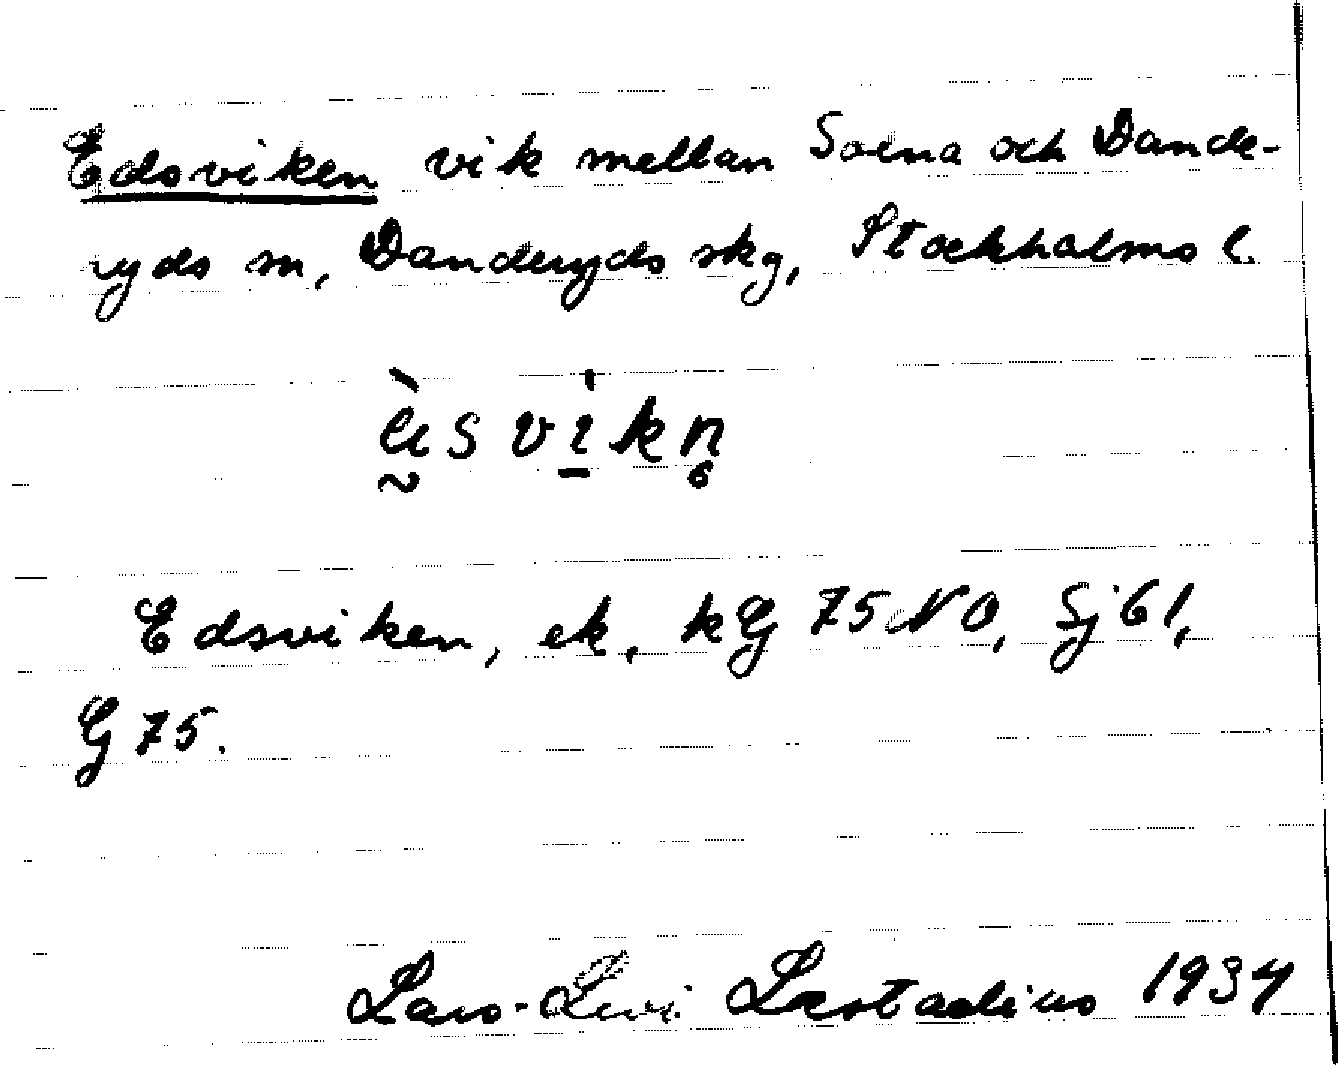 Edsviken vik mellan Solna och Dande-
ryds sn, Danderyds skg, Stockholms l.
Edsviken, ek, kG 75 NO, Sj 61,
G 75.
Lars-Levi Læstadius 1934